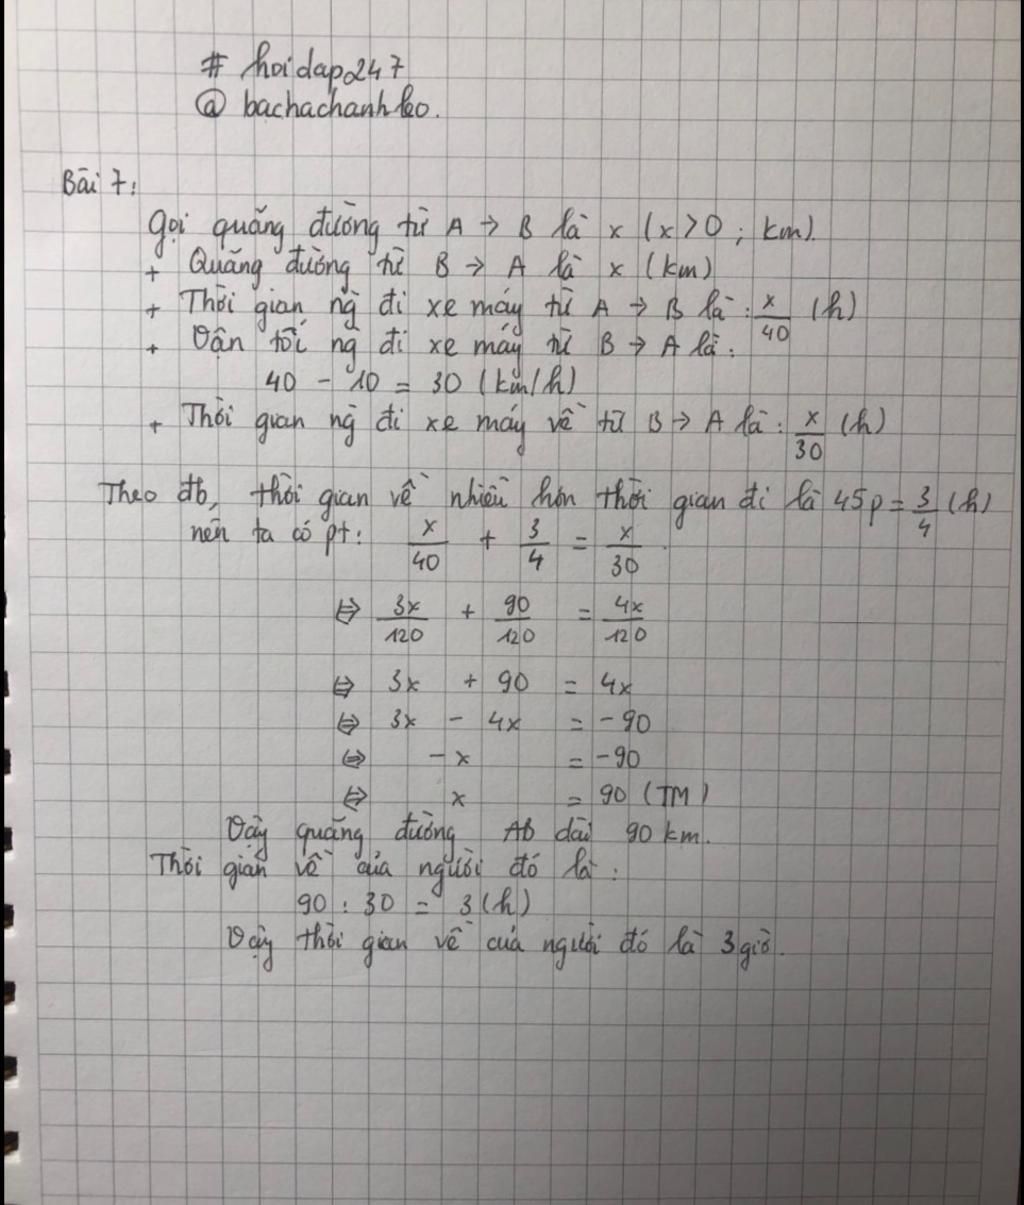 # hoidap247
@ bachachanhleo.
Bài 7:
Gọi quãng đường từ A → B là x (x > 0 ; km).
+ Quãng đường từ B → A là x (km)
+ Thời gian ng đi xe máy từ A → B là : x/40 (h)
+ Vận tốc ng đi xe máy từ B → A là :
40 - 10 = 30 (km/h)
+ Thời gian ng đi xe máy về từ B → A là : x/30 (h)
Theo đb, thời gian về nhiều hơn thời gian đi là 45p = 3/4 (h)
nên ta có pt: x/40 + 3/4 = x/30
⇔ 3x/120 + 90/120 = 4x/120
⇔ 3x + 90 = 4x
⇔ 3x - 4x = -90
⇔ -x = -90
⇔ x = 90 (TM)
Vậy quãng đường AB dài 90 km.
Thời gian về của người đó là :
90 : 30 = 3 (h)
Vậy thời gian về của người đó là 3 giờ.